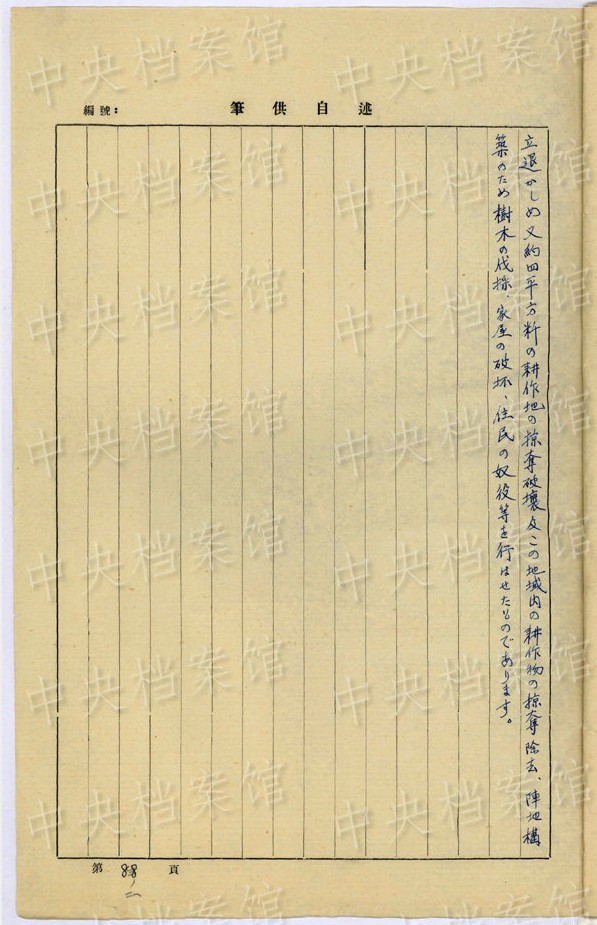 編號：
筆供自述
立退かしめ又約四平方粁の耕作地の掠奪破壞及この地域内の耕作物の掠奪除去、陣地構
築のため樹木の伐採、家屋の破坏、住民の奴役等を行はせたものであります。
第 88 頁
中央档案馆